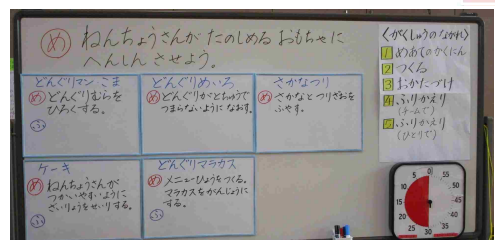 め ねんちょうさんが たのしめる おもちゃに
へんしん させよう。
どんぐりマン こま
め どんぐりむらを
ひろくする。
ふ
どんぐりめいろ
め どんぐりがとちゅうで
つまらないように なおす。
さかなつり
め さかなと つりざおを
ふやす。
ケーキ
め ねんちょうさんが
つかいやすいように
ざいりょうをせいりする。
ふ
どんぐりマラカス
め メニューひょうをつくる。
マラカスをがんじょうに
する。
ふ
〈がくしゅうの ながれ〉
1 めあてのかくにん
2 つくる
3 おかたづけ
4 ふりかえり
(チームで)
5 ふりかえり
(ひとりで)
0
5
10
15
20
25
30
35
40
45
50
55